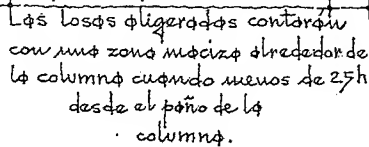 Las losas aligeradas contarán
con una zona maciza alrededor de
la columna cuando menos de 25h
desde el paño de la
columna.